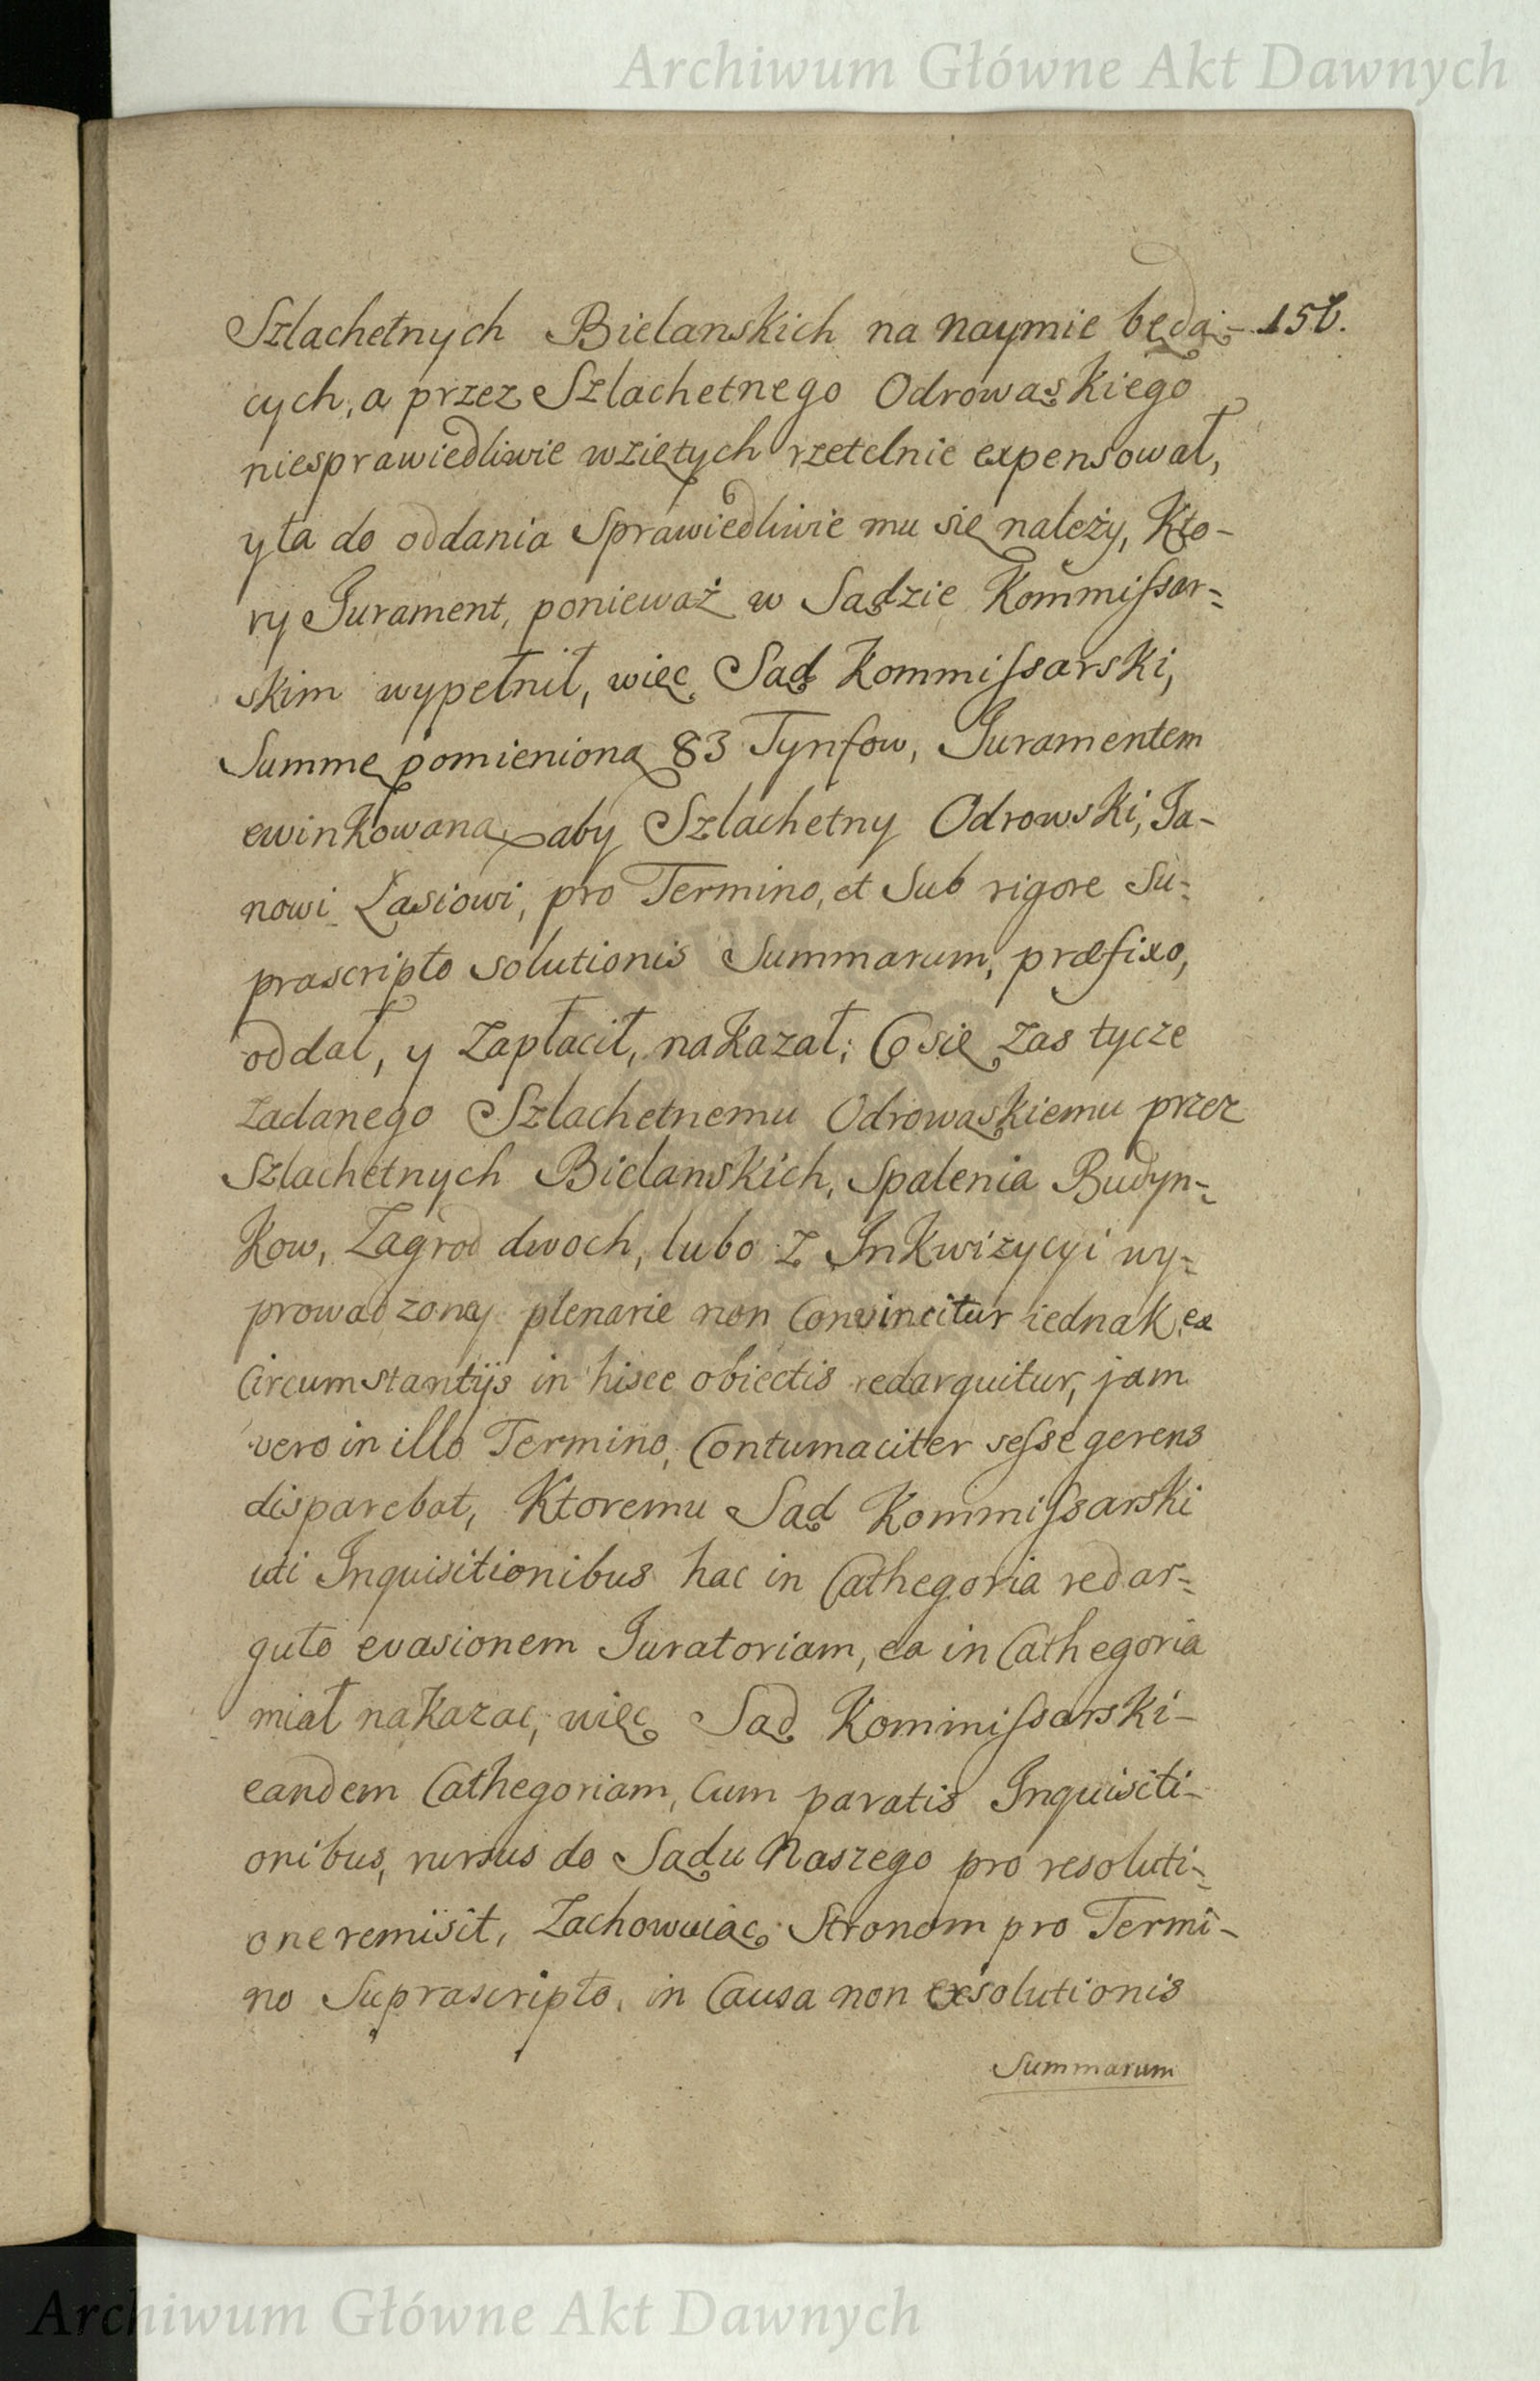 Archiwum Główne Akt Dawnych
Szlachetnych Bielanskich na naymie będą- 156.
cych, a przez Szlachetnego Odrowąskiego
niesprawiedliwie wziętych rzetelnie expensował,
y ta do oddania Sprawiedliwie mu się należy, Kto-
ry Jurament, ponieważ w Sądzie Kommissar-
skim wypełnił, więc Sąd Kommissarski,
Summę pomienioną 83 Tynfow, Juramentem
ewinkowaną, aby Szlachetny Odrowski, Ja-
nowi Łasiowi, pro Termino, et Sub rigore Su-
prascripto solutionis Summarum, præfixo,
oddał, y Zapłacił, nakazał; Co się Zas tycze
Zadanego Szlachetnemu Odrowąskiemu przez
Szlachetnych Bielanskich, Spalenia Budyn-
kow, Zagrod dwoch, lubo z Inkwizycyi wy-
prowadzoney plenarie non Convincitur iednak ex
Circumstantijs in hisce obiectis redarguitur, jam
vero in illo Termino, Contumaciter sesse gerens
disparebat, Ktoremu Sąd Kommissarski
uti Inquisitionibus hac in Cathegoria redar-
guto evasionem Juratoriam, ea in Cathegoria
miał nakazac, więc Sąd Kommissarski-
eandem Cathegoriam, Cum paratis Inquisiti-
onibus, rursus do Sądu Naszego pro resoluti-
one remisit, Zachowuiąc Stronom pro Termi-
no Suprascripto, in Causa non exsolutionis
Summarum
Archiwum Główne Akt Dawnych